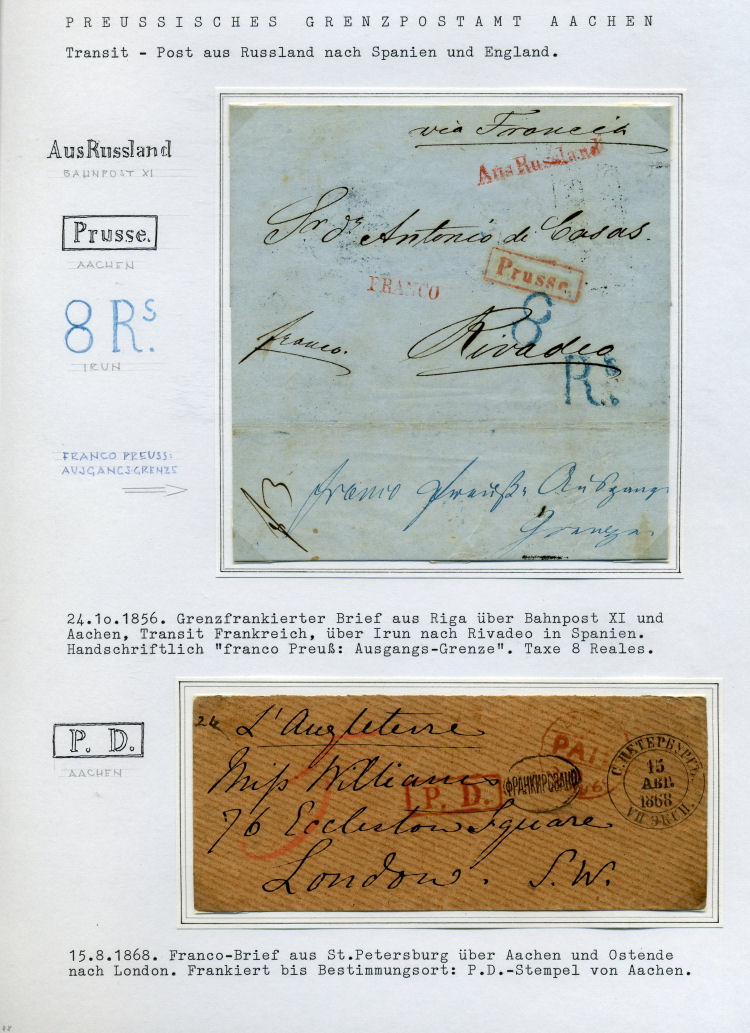 PREUSSISCHES GRENZPOSTAMT AACHEN
Transit - Post aus Russland nach Spanien und England.
AusRussland
BAHNPOST XI
Prusse.
AACHEN
8 Rs.
IRUN
FRANCO PREUSS:
AUSGANGS-GRENZE
via Francia
Aus Russland
Sr Dn Antonio de Casas.
Prusse.
FRANCO
8
franco.
Rivadeo
Rs.
franco Preuß: Ausgangs
Grenze.
24.1o.1856. Grenzfrankierter Brief aus Riga über Bahnpost XI und
Aachen, Transit Frankreich, über Irun nach Rivadeo in Spanien.
Handschriftlich "franco Preuß: Ausgangs-Grenze". Taxe 8 Reales.
P. D.
AACHEN
24
L'Angleterre
PAI
Miss Williams
P. D.
ФРАНКИРОВАНО
С.ПЕТЕРБУРГЪ
15
АВГ.
1868
VII ЭКСП.
76 Eccleston Square
London. S.W.
15.8.1868. Franco-Brief aus St.Petersburg über Aachen und Ostende
nach London. Frankiert bis Bestimmungsort: P.D.-Stempel von Aachen.